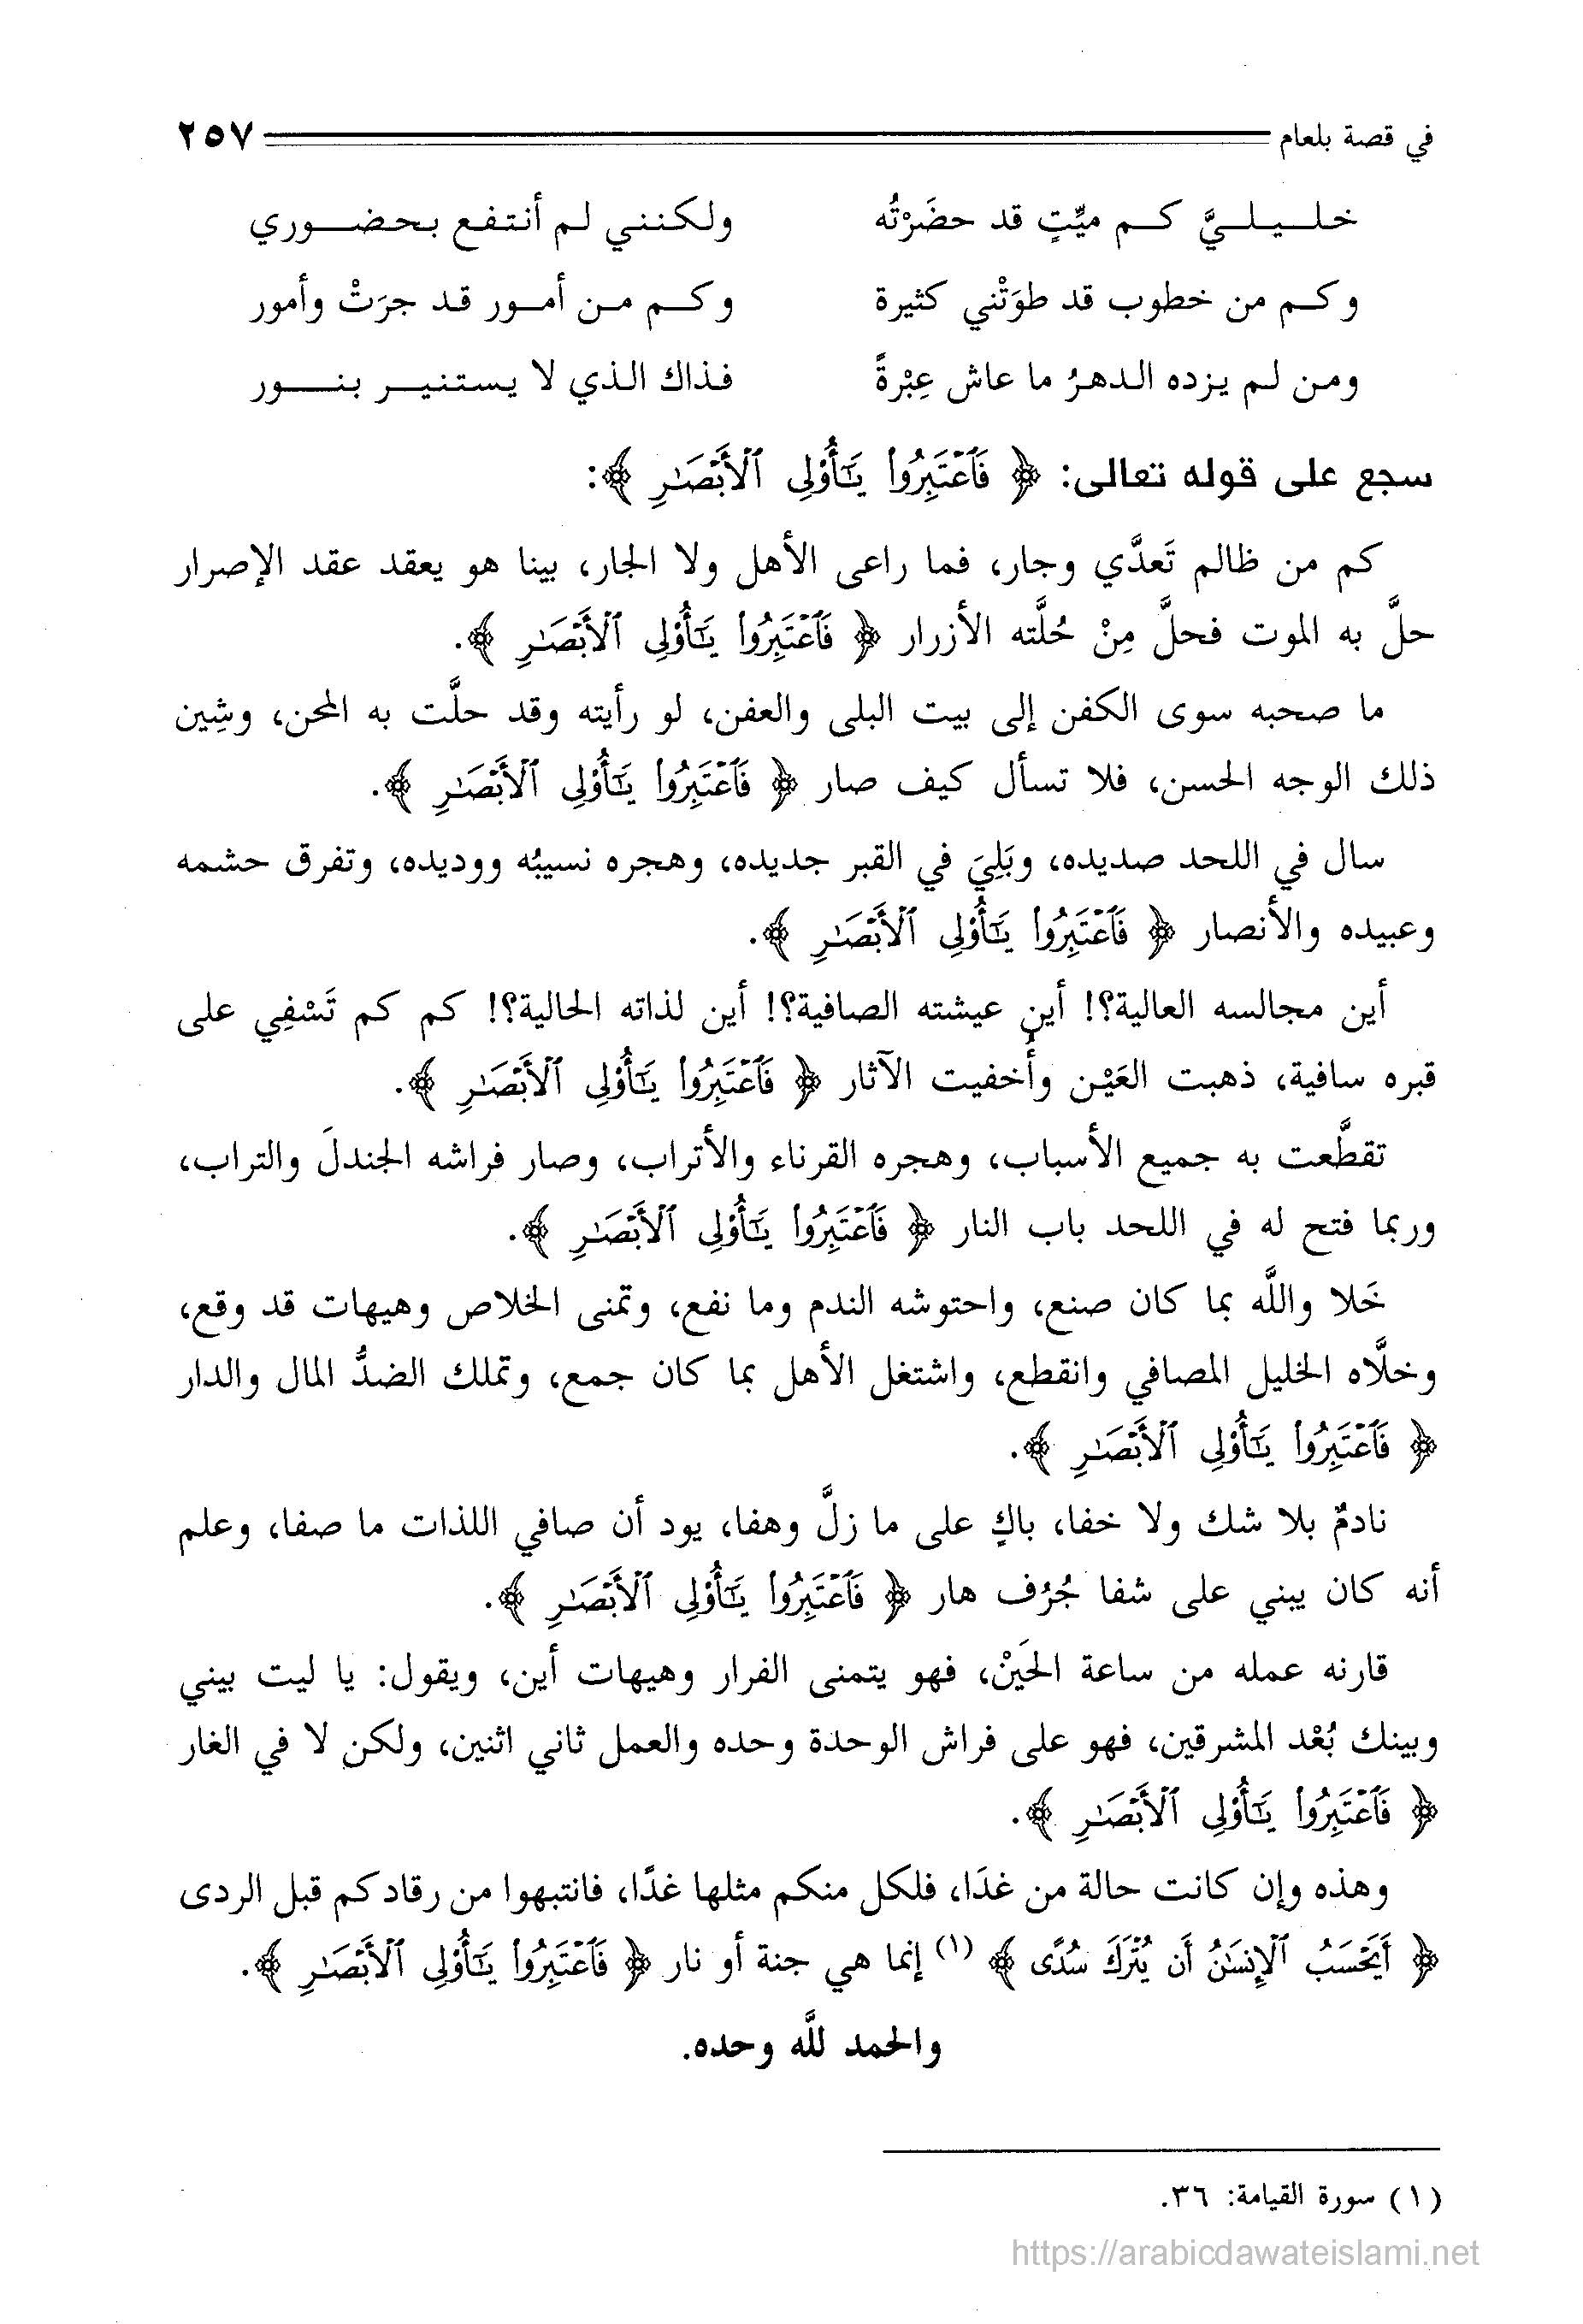 في قصة بلعام ٢٥٧
خلـيـلـيَّ كـم ميِّتٍ قد حضَرْتُه ولكنني لم أنتفع بحضوري
وكم من خطوب قد طوَتْني كثيرة وكم من أمور قد جرَتْ وأمور
ومن لم يزده الدهرُ ما عاش عِبْرةً فذاك الذي لا يستنير بنور
سجع على قوله تعالى: ﴿ فَٱعۡتَبِرُواْ يَٰٓأُوْلِي ٱلۡأَبۡصَٰرِ ﴾:
كم من ظالم تَعدَّي وجار، فما راعى الأهل ولا الجار، بينا هو يعقد عقد الإصرار
حلَّ به الموت فحلَّ مِنْ حُلَّته الأزرار ﴿ فَٱعۡتَبِرُواْ يَٰٓأُوْلِي ٱلۡأَبۡصَٰرِ ﴾.
ما صحبه سوى الكفن إلى بيت البلى والعفن، لو رأيته وقد حلَّت به المحن، وشِين
ذلك الوجه الحسن، فلا تسأل كيف صار ﴿ فَٱعۡتَبِرُواْ يَٰٓأُوْلِي ٱلۡأَبۡصَٰرِ ﴾.
سال في اللحد صديده، وبَلِيَ في القبر جديده، وهجره نسيبُه ووديده، وتفرق حشمه
وعبيده والأنصار ﴿ فَٱعۡتَبِرُواْ يَٰٓأُوْلِي ٱلۡأَبۡصَٰرِ ﴾.
أين مجالسه العالية؟! أين عيشته الصافية؟! أين لذاته الحالية؟! كم كم تَسْفِي على
قبره سافية، ذهبت العَيْن وأُخفيت الآثار ﴿ فَٱعۡتَبِرُواْ يَٰٓأُوْلِي ٱلۡأَبۡصَٰرِ ﴾.
تقطَّعت به جميع الأسباب، وهجره القرناء والأتراب، وصار فراشه الجندلَ والتراب،
وربما فتح له في اللحد باب النار ﴿ فَٱعۡتَبِرُواْ يَٰٓأُوْلِي ٱلۡأَبۡصَٰرِ ﴾.
خَلا واللَّه بما كان صنع، واحتوشه الندم وما نفع، وتمنى الخلاص وهيهات قد وقع،
وخلَّاه الخليل المصافي وانقطع، واشتغل الأهل بما كان جمع، وتملك الضدُّ المال والدار
﴿ فَٱعۡتَبِرُواْ يَٰٓأُوْلِي ٱلۡأَبۡصَٰرِ ﴾.
نادمٌ بلا شك ولا خفا، باكٍ على ما زلَّ وهفا، يود أن صافي اللذات ما صفا، وعلم
أنه كان يبني على شفا جُرُف هار ﴿ فَٱعۡتَبِرُواْ يَٰٓأُوْلِي ٱلۡأَبۡصَٰرِ ﴾.
قارنه عمله من ساعة الحَيْن، فهو يتمنى الفرار وهيهات أين، ويقول: يا ليت بيني
وبينك بُعْد المشرقين، فهو على فراش الوحدة وحده والعمل ثاني اثنين، ولكن لا في الغار
﴿ فَٱعۡتَبِرُواْ يَٰٓأُوْلِي ٱلۡأَبۡصَٰرِ ﴾.
وهذه وإن كانت حالة من غدَا، فلكل منكم مثلها غدًا، فانتبهوا من رقادكم قبل الردى
﴿ أَيَحۡسَبُ ٱلۡإِنسَٰنُ أَن يُتۡرَكَ سُدًى ﴾ (١) إنما هي جنة أو نار ﴿ فَٱعۡتَبِرُواْ يَٰٓأُوْلِي ٱلۡأَبۡصَٰرِ ﴾.
والحمد للَّه وحده.
(١) سورة القيامة: ٣٦.
https://arabicdawateislami.net